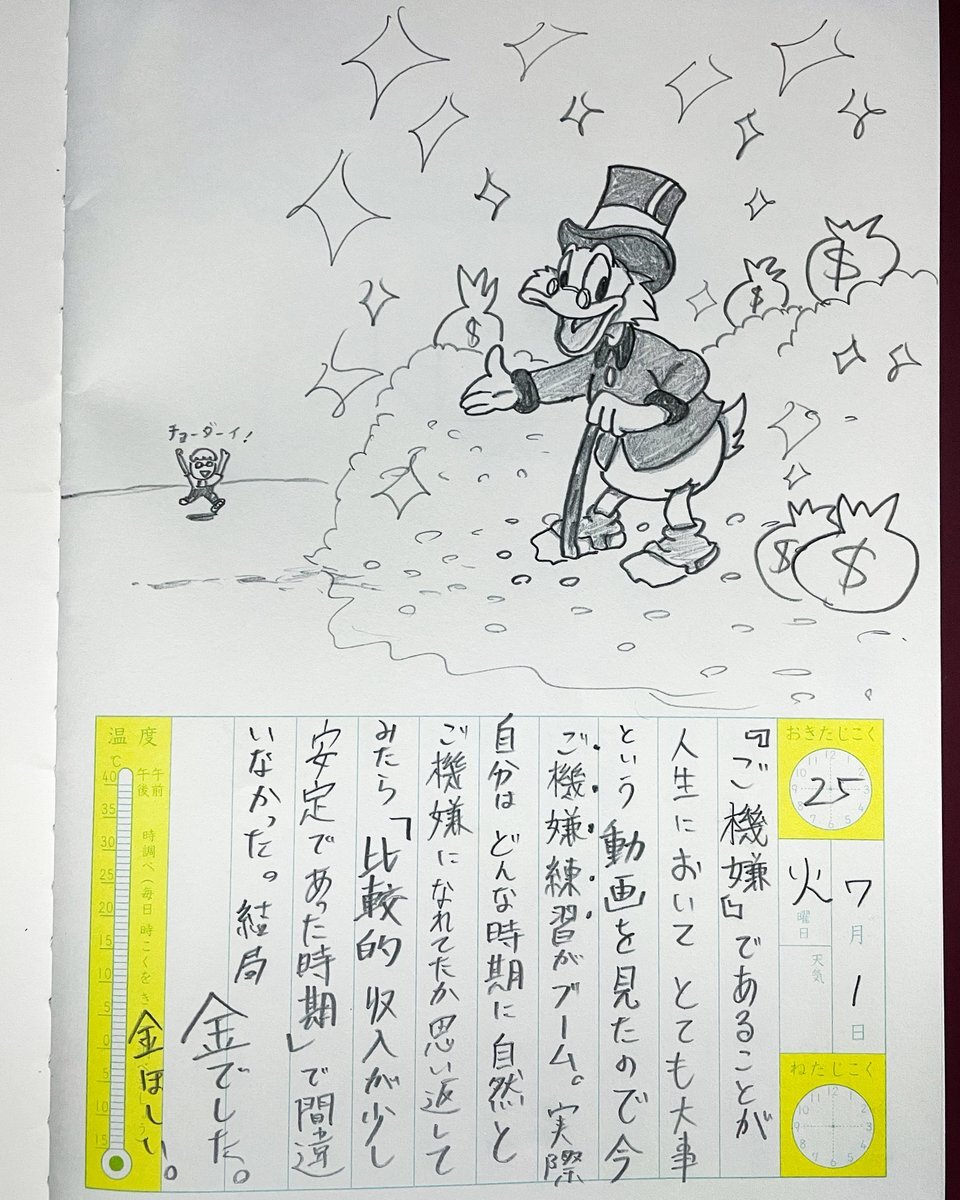 チョーダーイ!
$
$
$
$
$
おきたじこく
25
7月1日
火曜日
天気
ねたじこく
『ご機嫌』であることが
人生においてとても大事
という動画を見たので今
ご機嫌練習がブーム。実際
自分はどんな時期に自然と
ご機嫌になれてたか思い返して
みたら「比較的収入が少し
安定であった時期」で間違
いなかった。結局
金でした。
金ほしい。
温度
℃
午前
午後
時調べ(毎日
時こくをき
40
35
30
25
20
15
10
5
0
5
10
15